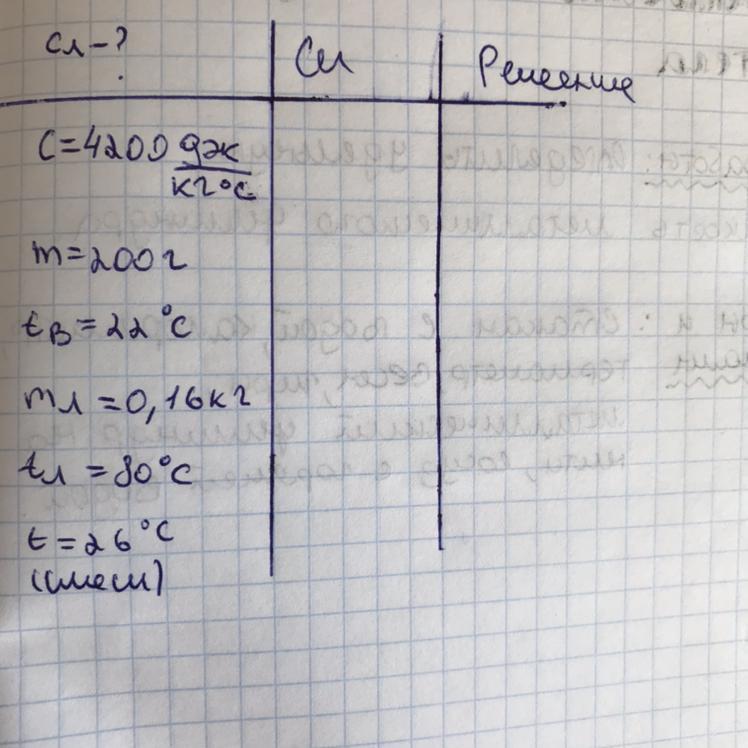 Сл-?
Си
Решение
C=4200 дж
кг°с
m=200г
tв=22°C
mл=0,16кг
tл=80°C
t=26°C
(смеси)